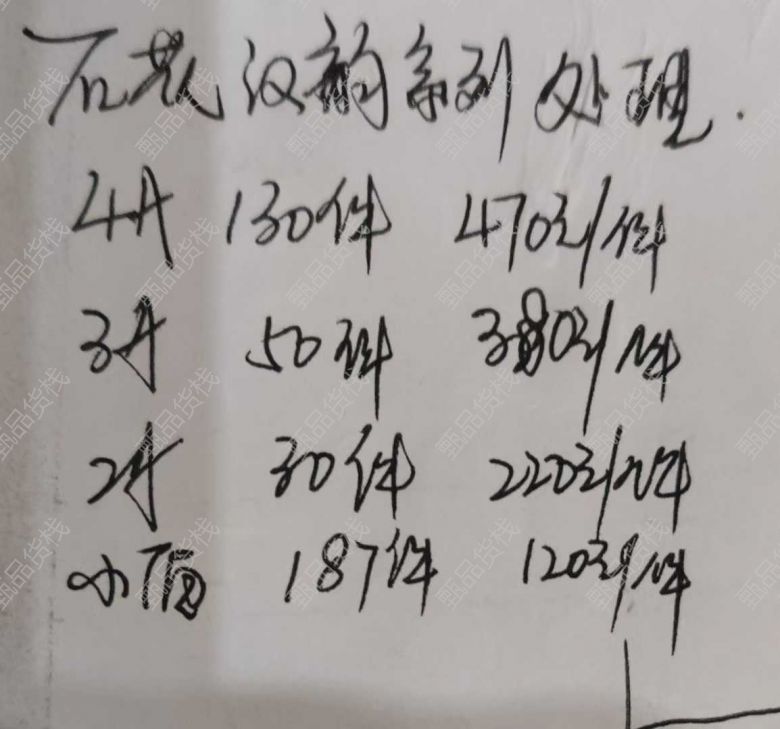 石花汉韵系列处理.
4升 130件 470元/件
3升 50件 380元/件
2升 30件 220元/件
小酒 187件 120元/件
甄品货栈